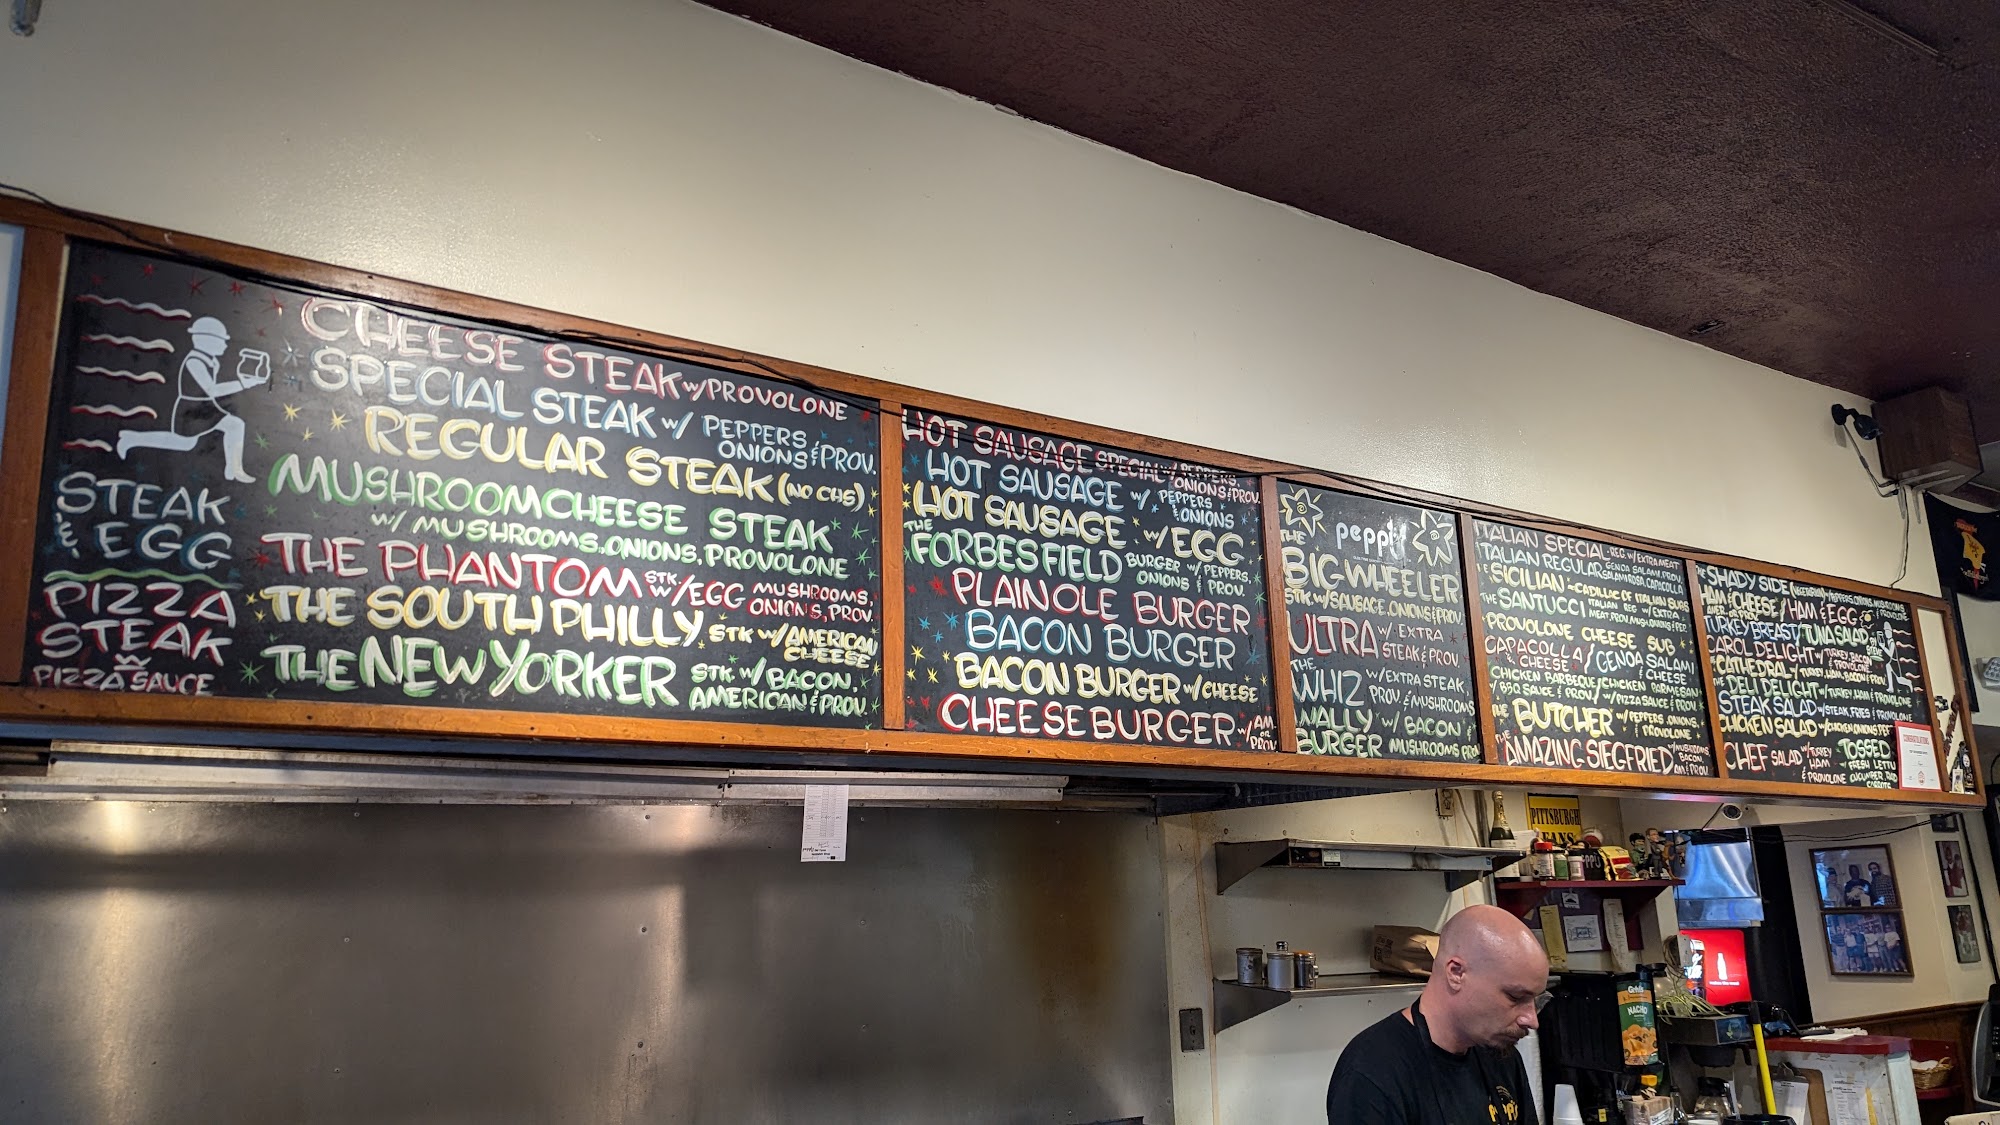 STEAK
& EGG
PIZZA
STEAK
W
PIZZA SAUCE
CHEESE STEAK W/PROVOLONE
SPECIAL STEAK W/ PEPPERS
ONIONS & PROV.
REGULAR STEAK (NO CHS)
MUSHROOM CHEESE STEAK
W/ MUSHROOMS, ONIONS, PROVOLONE
THE PHANTOM STK. W/EGG MUSHROOMS,
ONIONS, PROV.
THE SOUTH PHILLY STK W/AMERICAN
CHEESE
THE NEW YORKER STK W/BACON,
AMERICAN & PROV.
HOT SAUSAGE SPECIAL W/ PEPPERS,
ONIONS & PROV.
HOT SAUSAGE W/ PEPPERS
& ONIONS
HOT SAUSAGE W/ EGG
THE
FORBES FIELD BURGER W/ PEPPERS,
ONIONS & PROV.
PLAIN OLE BURGER
BACON BURGER
BACON BURGER W/ CHEESE
CHEESEBURGER W/ AM
OR
PROV
peppi's
THE
BIG WHEELER
STK. W/ SAUSAGE, ONIONS & PROV.
ULTRA W/ EXTRA
STEAK & PROV.
THE
WHIZ W/EXTRA STEAK,
PROV. & MUSHROOMS
WALLY W/ BACON &
BURGER MUSHROOMS PROV
ITALIAN SPECIAL - REG. W/ EXTRA MEAT
ITALIAN REGULAR GENOA SALAMI, PROV.
THE SICILIAN - CADILLAC OF ITALIAN SUBS
THE SANTUCCI ITALIAN REG W/ EXTRA
MEAT, PROV, MUSH, ONIONS & PEP.
PROVOLONE CHEESE SUB
CAPACOLLA & CHEESE / GENOA SALAMI & CHEESE
CHICKEN BARBEQUE / CHICKEN PARMESAN
W/ BBQ SAUCE & PROV. / W/PIZZA SAUCE & PROV
THE BUTCHER W/ PEPPERS, ONIONS,
& PROVOLONE
THE AMAZING SIEGFRIED W/MUSHROOMS,
BACON,
AM & PROV
THE SHADY SIDE
HAM & CHEESE / HAM & EGG
AMER. OR PROV. & PROVOLONE
TURKEY BREAST / TUNA SALAD
CAROL DELIGHT W/ TURKEY, BACON
& PROVOLONE
CATHEDRAL - TURKEY, HAM, BACON & PROV.
THE DELI DELIGHT W/ TURKEY, HAM & PROVOLONE
STEAK SALAD W/STEAK, FRIES & PROVOLONE
CHICKEN SALAD
CHEF SALAD W/ TURKEY
HAM
& PROVOLONE
TOSSED
FRESH LETTU
CUCUMBER
CARROTS
PITTSBURGH
NACHO